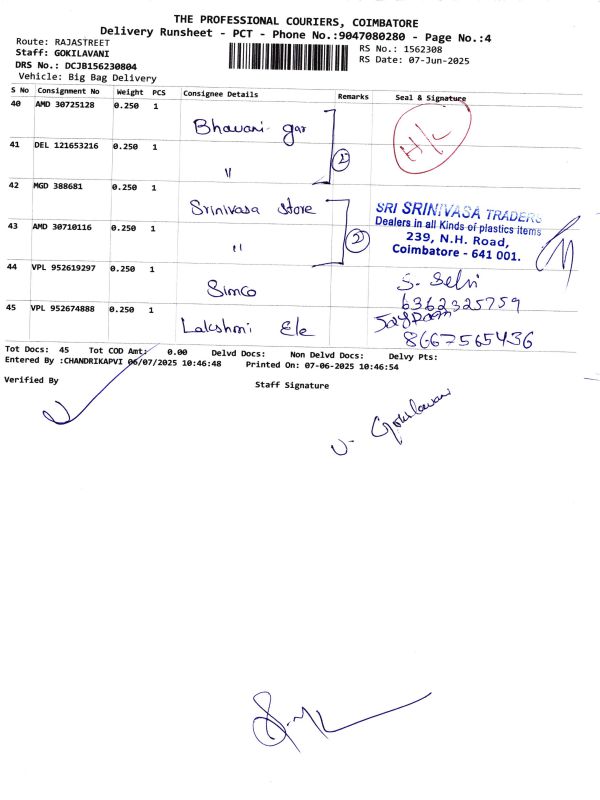 THE PROFESSIONAL COURIERS, COIMBATORE
Delivery Runsheet - PCT - Phone No.:9047080280 - Page No.:4
Route: RAJASTREET
RS No.: 1562308
Staff: GOKILAVANI
RS Date: 07-Jun-2025
DRS No.: DCJB156230804
Vehicle: Big Bag Delivery
S No Consignment No Weight PCS Consignee Details Remarks Seal & Signature
40 AMD 30725128 0.250 1 Bhavani gar H/L
41 DEL 121653216 0.250 1 " 2
42 MGD 388681 0.250 1 Srinivasa Store
SRI SRINIVASA TRADERS
Dealers in all Kinds of plastics items
43 AMD 30710116 0.250 1 " 2
239, N.H. Road,
Coimbatore - 641 001.
44 VPL 952619297 0.250 1 Simco S. Selvi
6362325759
45 VPL 952674888 0.250 1 Lakshmi Ele
8667565436
Tot Docs: 45 Tot COD Amt: 0.00 Delvd Docs: Non Delvd Docs: Delvy Pts:
Entered By :CHANDRIKAPVI 06/07/2025 10:46:48 Printed On: 07-06-2025 10:46:54
Verified By Staff Signature
V. Gokilavani